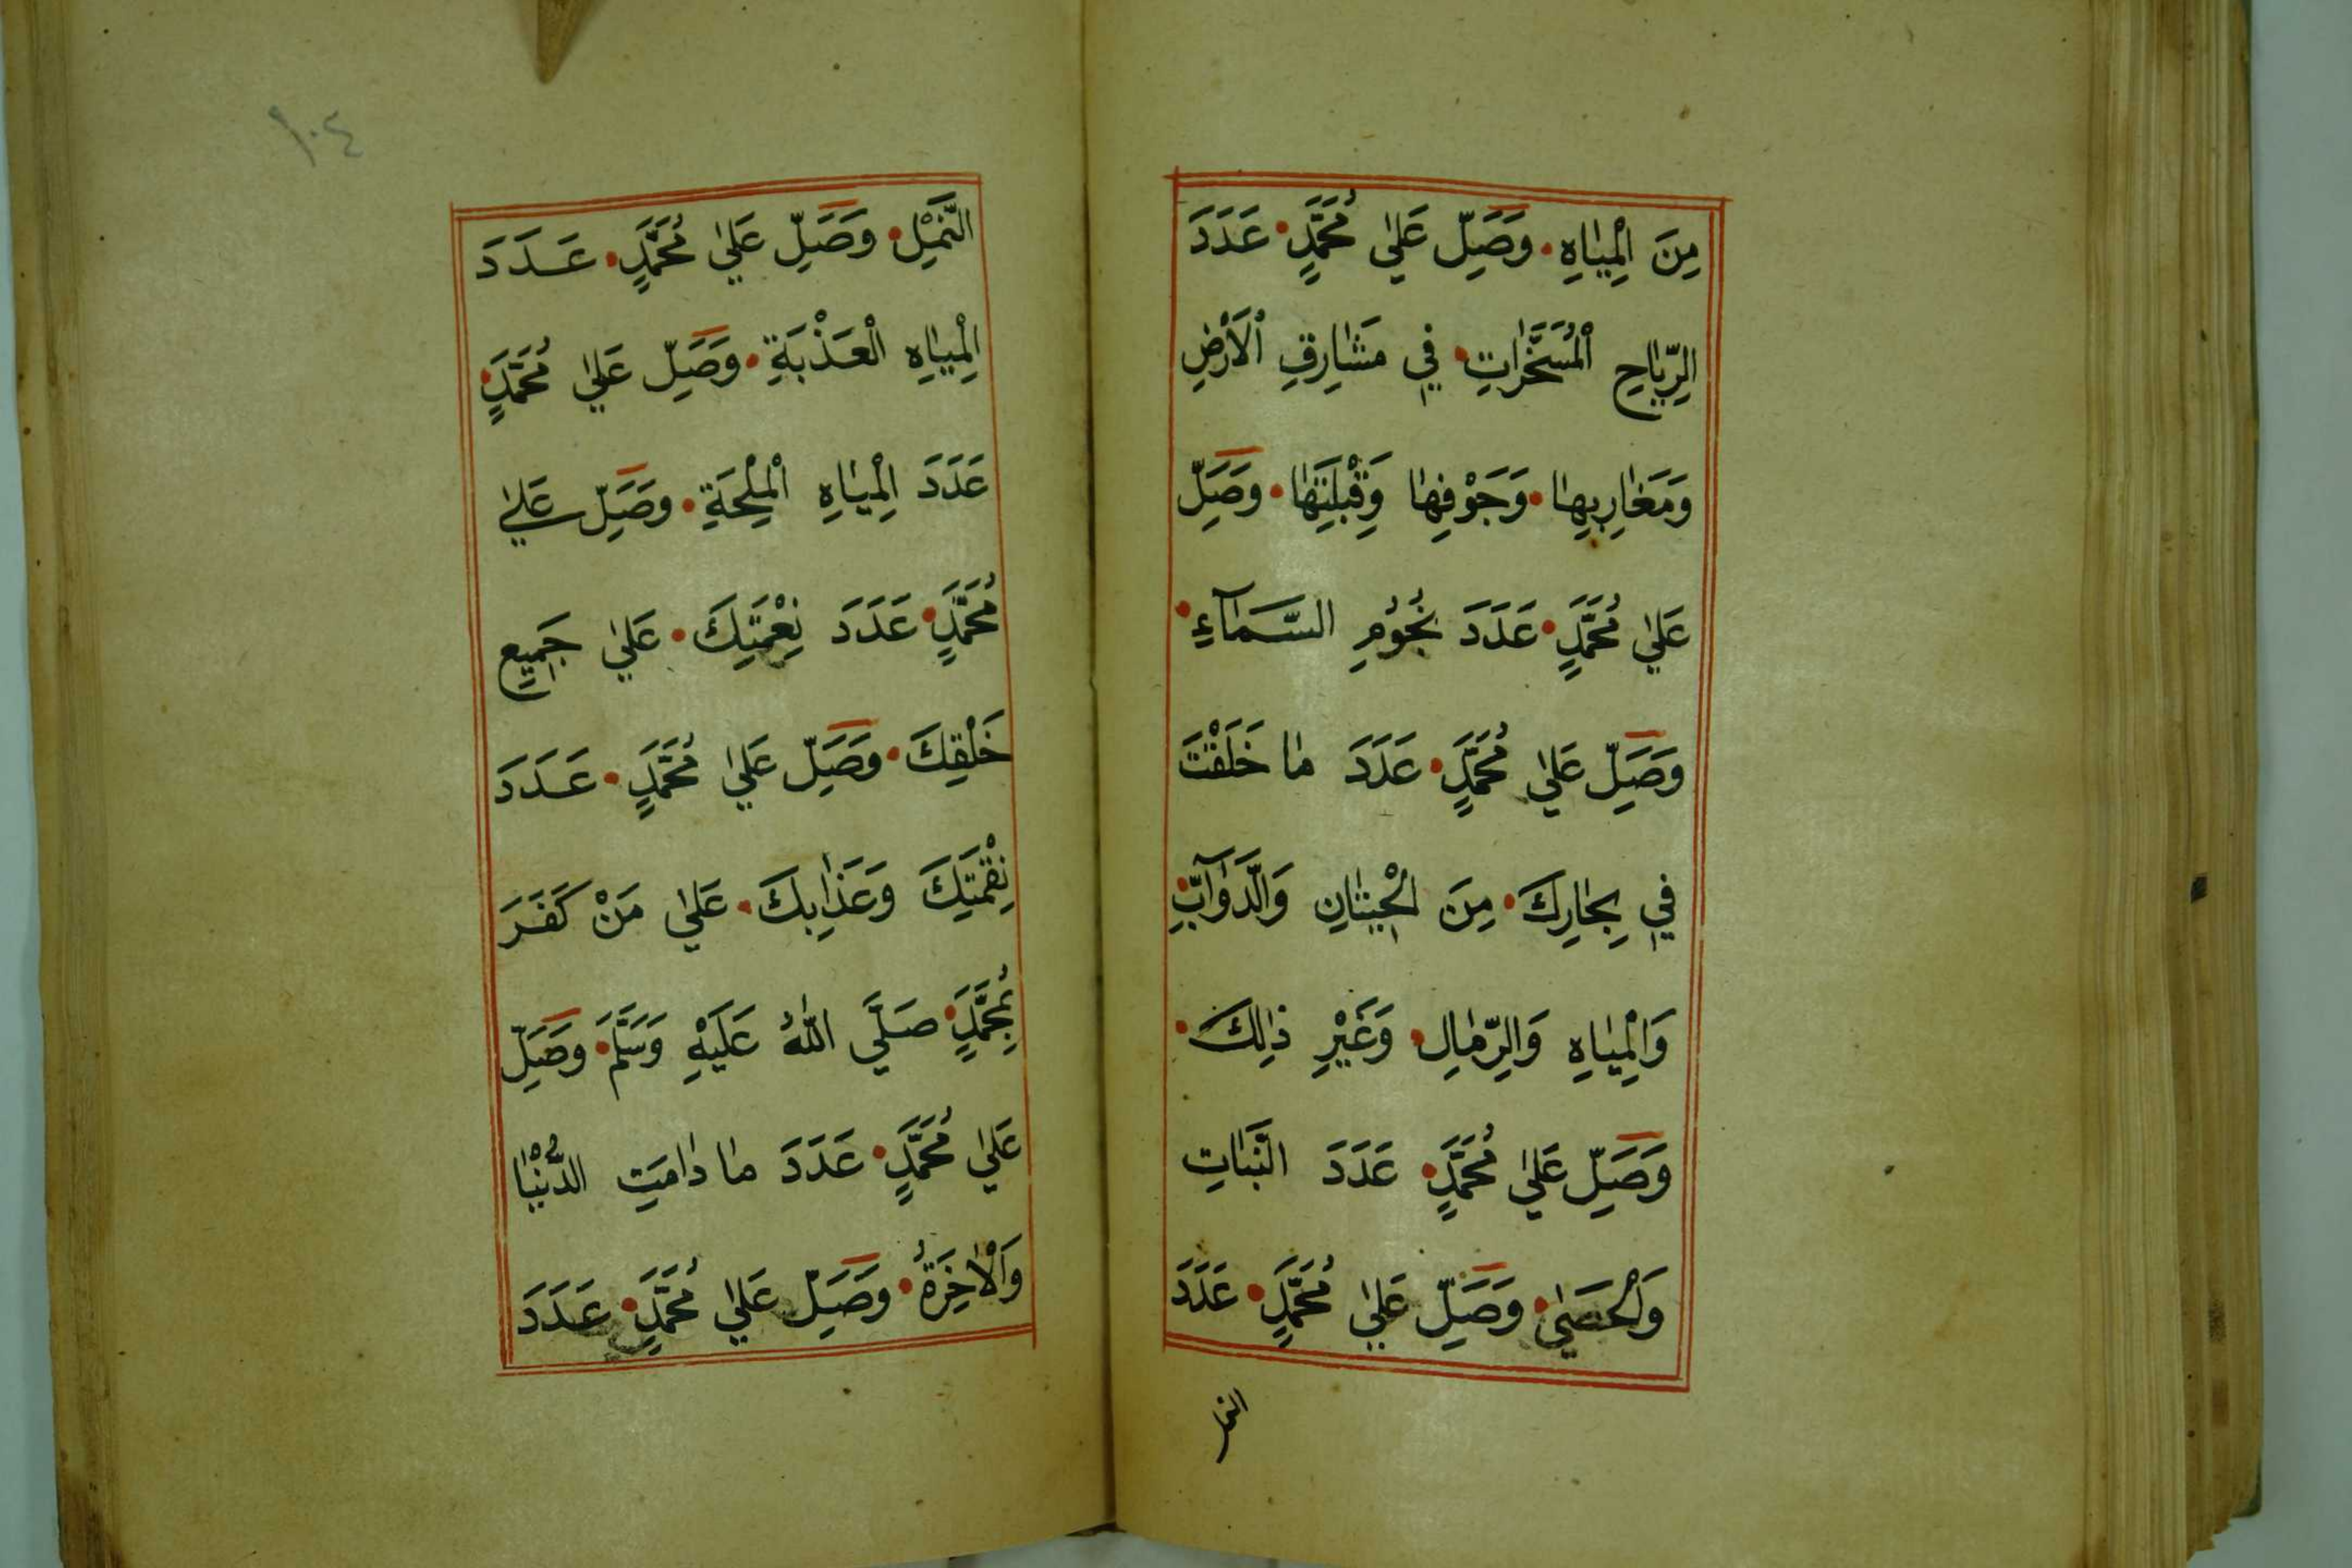 مِنَ الْمِيَاهِ۰ وَصَلِّ عَلَى مُحَمَّدٍ۰ عَدَدَ
الرِّيَاحِ الْمُسَخَّرَاتِ۰ فِي مَشَارِقِ الْاَرْضِ
وَمَغَارِبِهَا۰ وَجَوْفِهَا وَقِبْلَتِهَا۰ وَصَلِّ
عَلَى مُحَمَّدٍ۰ عَدَدَ نُجُوْمِ السَّمَآءِ۰
وَصَلِّ عَلَى مُحَمَّدٍ۰ عَدَدَ مَا خَلَقْتَ
فِي بِحَارِكَ۰ مِنَ الْحِيتَانِ وَالدَّوَآبِّ۰
وَالْمِيَاهِ وَالرِّمَالِ۰ وَغَيْرِ ذٰلِكَ۰
وَصَلِّ عَلَى مُحَمَّدٍ۰ عَدَدَ النَّبَاتِ
وَالْحَصَى۰ وَصَلِّ عَلَى مُحَمَّدٍ۰ عَدَدَ
النمل
١٠٤
النَّمْلِ۰ وَصَلِّ عَلَى مُحَمَّدٍ۰ عَدَدَ
الْمِيَاهِ الْعَذْبَةِ۰ وَصَلِّ عَلَى مُحَمَّدٍ۰
عَدَدَ الْمِيَاهِ الْمِلْحَةِ۰ وَصَلِّ عَلَى
مُحَمَّدٍ۰ عَدَدَ نِعْمَتِكَ۰ عَلَى جَمِيعِ
خَلْقِكَ۰ وَصَلِّ عَلَى مُحَمَّدٍ۰ عَدَدَ
نِقْمَتِكَ وَعَذَابِكَ۰ عَلَى مَنْ كَفَرَ
بِمُحَمَّدٍ۰ صَلَّى اللّٰهُ عَلَيْهِ وَسَلَّمَ۰ وَصَلِّ
عَلَى مُحَمَّدٍ۰ عَدَدَ مَا دَامَتِ الدُّنْيَا
وَالْاٰخِرَةُ۰ وَصَلِّ عَلَى مُحَمَّدٍ۰ عَدَدَ